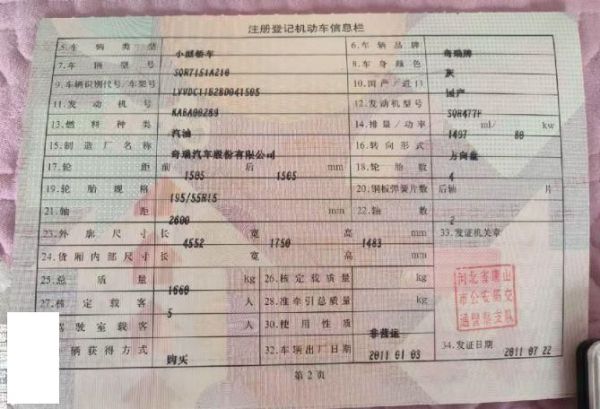 注册登记机动车信息栏
5.车辆类型 小型轿车 6.车辆品牌 奇瑞牌
7.车辆型号 SQR7151A210 8.车身颜色 灰
9.车辆识别代号/车架号 10.国产/进口 国产
11.发动机号 12.发动机型号 SQR477F
13.燃料种类 汽油 14.排量/功率 1497 ml/ 80 kw
15.制造厂名称 奇瑞汽车股份有限公司 16.转向形式 方向盘
17.轮距 前 1505 后 1505 mm 18.轮胎数 4
19.轮胎规格 195/55R15 20.钢板弹簧片数 后轴 片
21.轴距 2600 mm 22.轴数 2
23.外廓尺寸 长 4552 宽 1750 高 1483 mm 33.发证机关章
24.货厢内部尺寸 长 宽 高 mm
25.总质量 1660 kg 26.核定载质量 kg
27.核定载客 5 人 28.准牵引总质量 kg
驾驶室载客 人 30.使用性质 非营运
辆获得方式 购买 32.车辆出厂日期 2011 01 03 34.发证日期 2011 07 22
河北省唐山
市公安局交
通警察支队
第2页